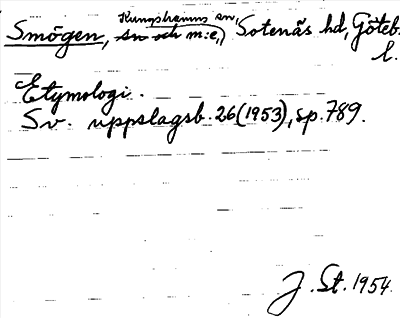 Smögen, Kungshamns sn, Sotenäs hd, Göteb.
sn och m:e,)
l.
Etymologi.
Sv. uppslagsb. 26 (1953), sp. 789.
J. St. 1954